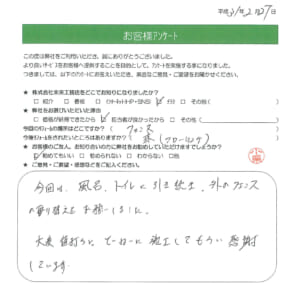 平成31年2月27日
お客様アンケート
この度は弊社をご利用いただき、誠にありがとうございました。
より良いサービスをお客様へ提供することを目的として、アンケートを実施する事になりました。
つきましては、以下のアンケートにお答えいただき、率直なご意見・ご要望をお聞かせください。
■株式会社未来工務店をどこでお知りになりましたか？
□紹介 □看板 □その他（ ）
■弊社をお選びいただいた理由
□価格が納得できたから 担当者が良かったから □その他（ ）
フェンス
床（フローリング）
■お客様のご友人、お知り合いの方に弊社をお勧めしていただけますでしょうか？
勧めてもいい □勧められない □わからない □他
■ご意見・ご要望・感想などをご記入ください。
今回は、風呂、トイレに引き続き、外のフェンス
の取り替えをお願いしました。
大変 値打ちに、ていねいに施工してもらい感謝
しています。